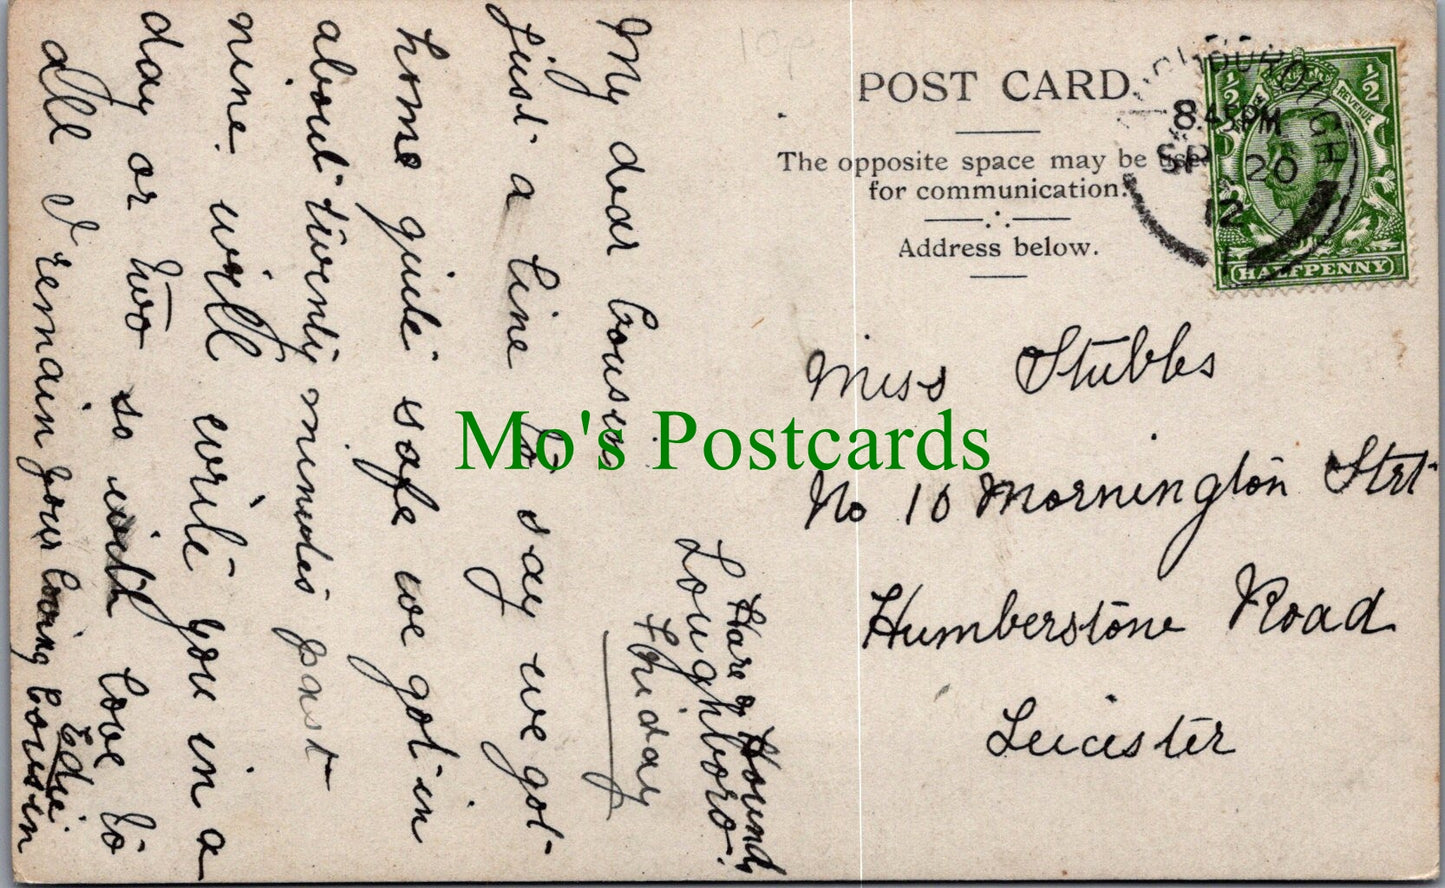 POST CARD.
The opposite space may be used
for communication.
Address below.
LOUGHBOROUGH
8.45 PM
SP 20
12
1/2
1/2
POSTAGE
REVENUE
HALFPENNY
Miss Stubbs
No 10 Mornington Strt
Humberstone Road
Leicester
Mo's Postcards
Hare & Hounds
Loughboro.
Friday
My dear Cousin
Just a line to say we got
home quite safe we got in
about twenty minutes past
nine. will write you in a
day or two so with love to
all I remain your loving Cousin
Edie.